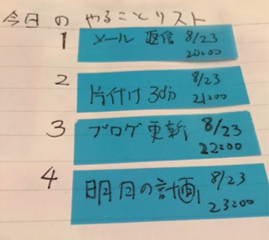 今日のやることリスト
1 メール 返信 8/23
20:00
2 片付け 30分 8/23
21:00
3 ブログ更新 8/23
22:00
4 明日の計画 8/23
23:00